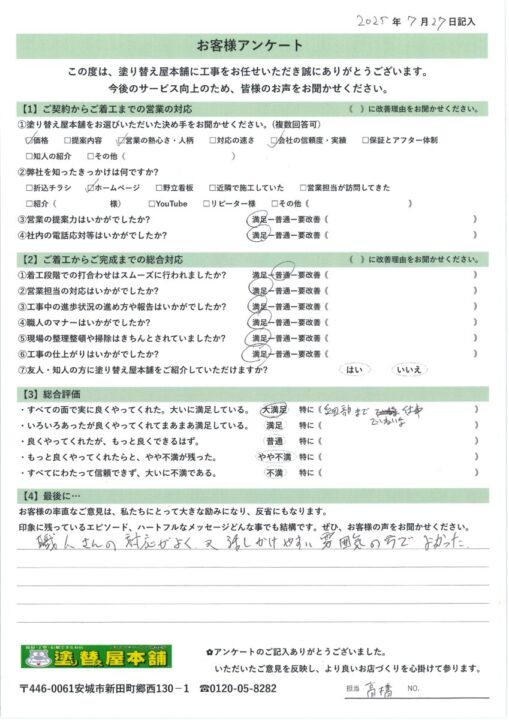 2025年7月27日記入
お客様アンケート
この度は、塗り替え屋本舗に工事をお任せいただき誠にありがとうございます。
今後のサービス向上のため、皆様のお声をお聞かせください。
【1】ご契約からご着工までの営業の対応 《 》に改善理由をお聞かせください。
①塗り替え屋本舗をお選びいただいた決め手をお聞かせください。(複数回答可)
☑価格 □提案内容 ☑営業の熱心さ・人柄 □対応の速さ ☑会社の信頼度・実績 □保証とアフター体制
□知人の紹介 □その他( )
②弊社を知ったきっかけは何ですか?
□折込チラシ ☑ホームページ □野立看板 □近隣で施工していた □営業担当が訪問してきた
□紹介( 様) □YouTube □リピーター様 □その他( )
③営業の提案力はいかがでしたか? 満足ー普通ー要改善《 》
④社内の電話応対等はいかがでしたか? 満足ー普通ー要改善《 》
【2】ご着工からご完成までの総合対応 《 》に改善理由をお聞かせください。
①着工段階での打合わせはスムーズに行われましたか? 満足ー普通ー要改善《 》
②営業担当の対応はいかがでしたか? 満足ー普通ー要改善《 》
③工事中の進歩状況の進め方や報告はいかがでしたか? 満足ー普通ー要改善《 》
④職人のマナーはいかがでしたか? 満足ー普通ー要改善《 》
⑤現場の整理整頓や掃除はきちんとされていましたか? 満足ー普通ー要改善《 》
⑥工事の仕上がりはいかがでしたか? 満足ー普通ー要改善《 》
⑦友人・知人の方に塗り替え屋本舗をご紹介していただけますか? はい いいえ
【3】総合評価
・すべての面で実に良くやってくれた。大いに満足している。 大満足 特に《細部まで ていねいな 仕事 》
・いろいろあったが良くやってくれてまあまあ満足している。 満足 特に《 》
・良くやってくれたが、もっと良くできるはず。 普通 特に《 》
・もっと良くやってくれたらと、やや不満が残った。 やや不満 特に《 》
・すべてにわたって信頼できず、大いに不満である。 不満 特に《 》
【4】最後に…
お客様の率直なご意見は、私たちにとって大きな励みになり、反省にもなります。
印象に残っているエピソード、ハートフルなメッセージどんな事でも結構です。ぜひ、お客様の声をお聞かせください。
職人さんの対応がよく、又話しかけやすい雰囲気の方でよかった。
塗り替え屋本舗
✿アンケートのご記入ありがとうございました。
いただいたご意見を反映し、より良いお店づくりを心掛けて参ります。
〒446-0061安城市新田町郷西130−1 ☎0120-05-8282
担当 髙橋 NO.